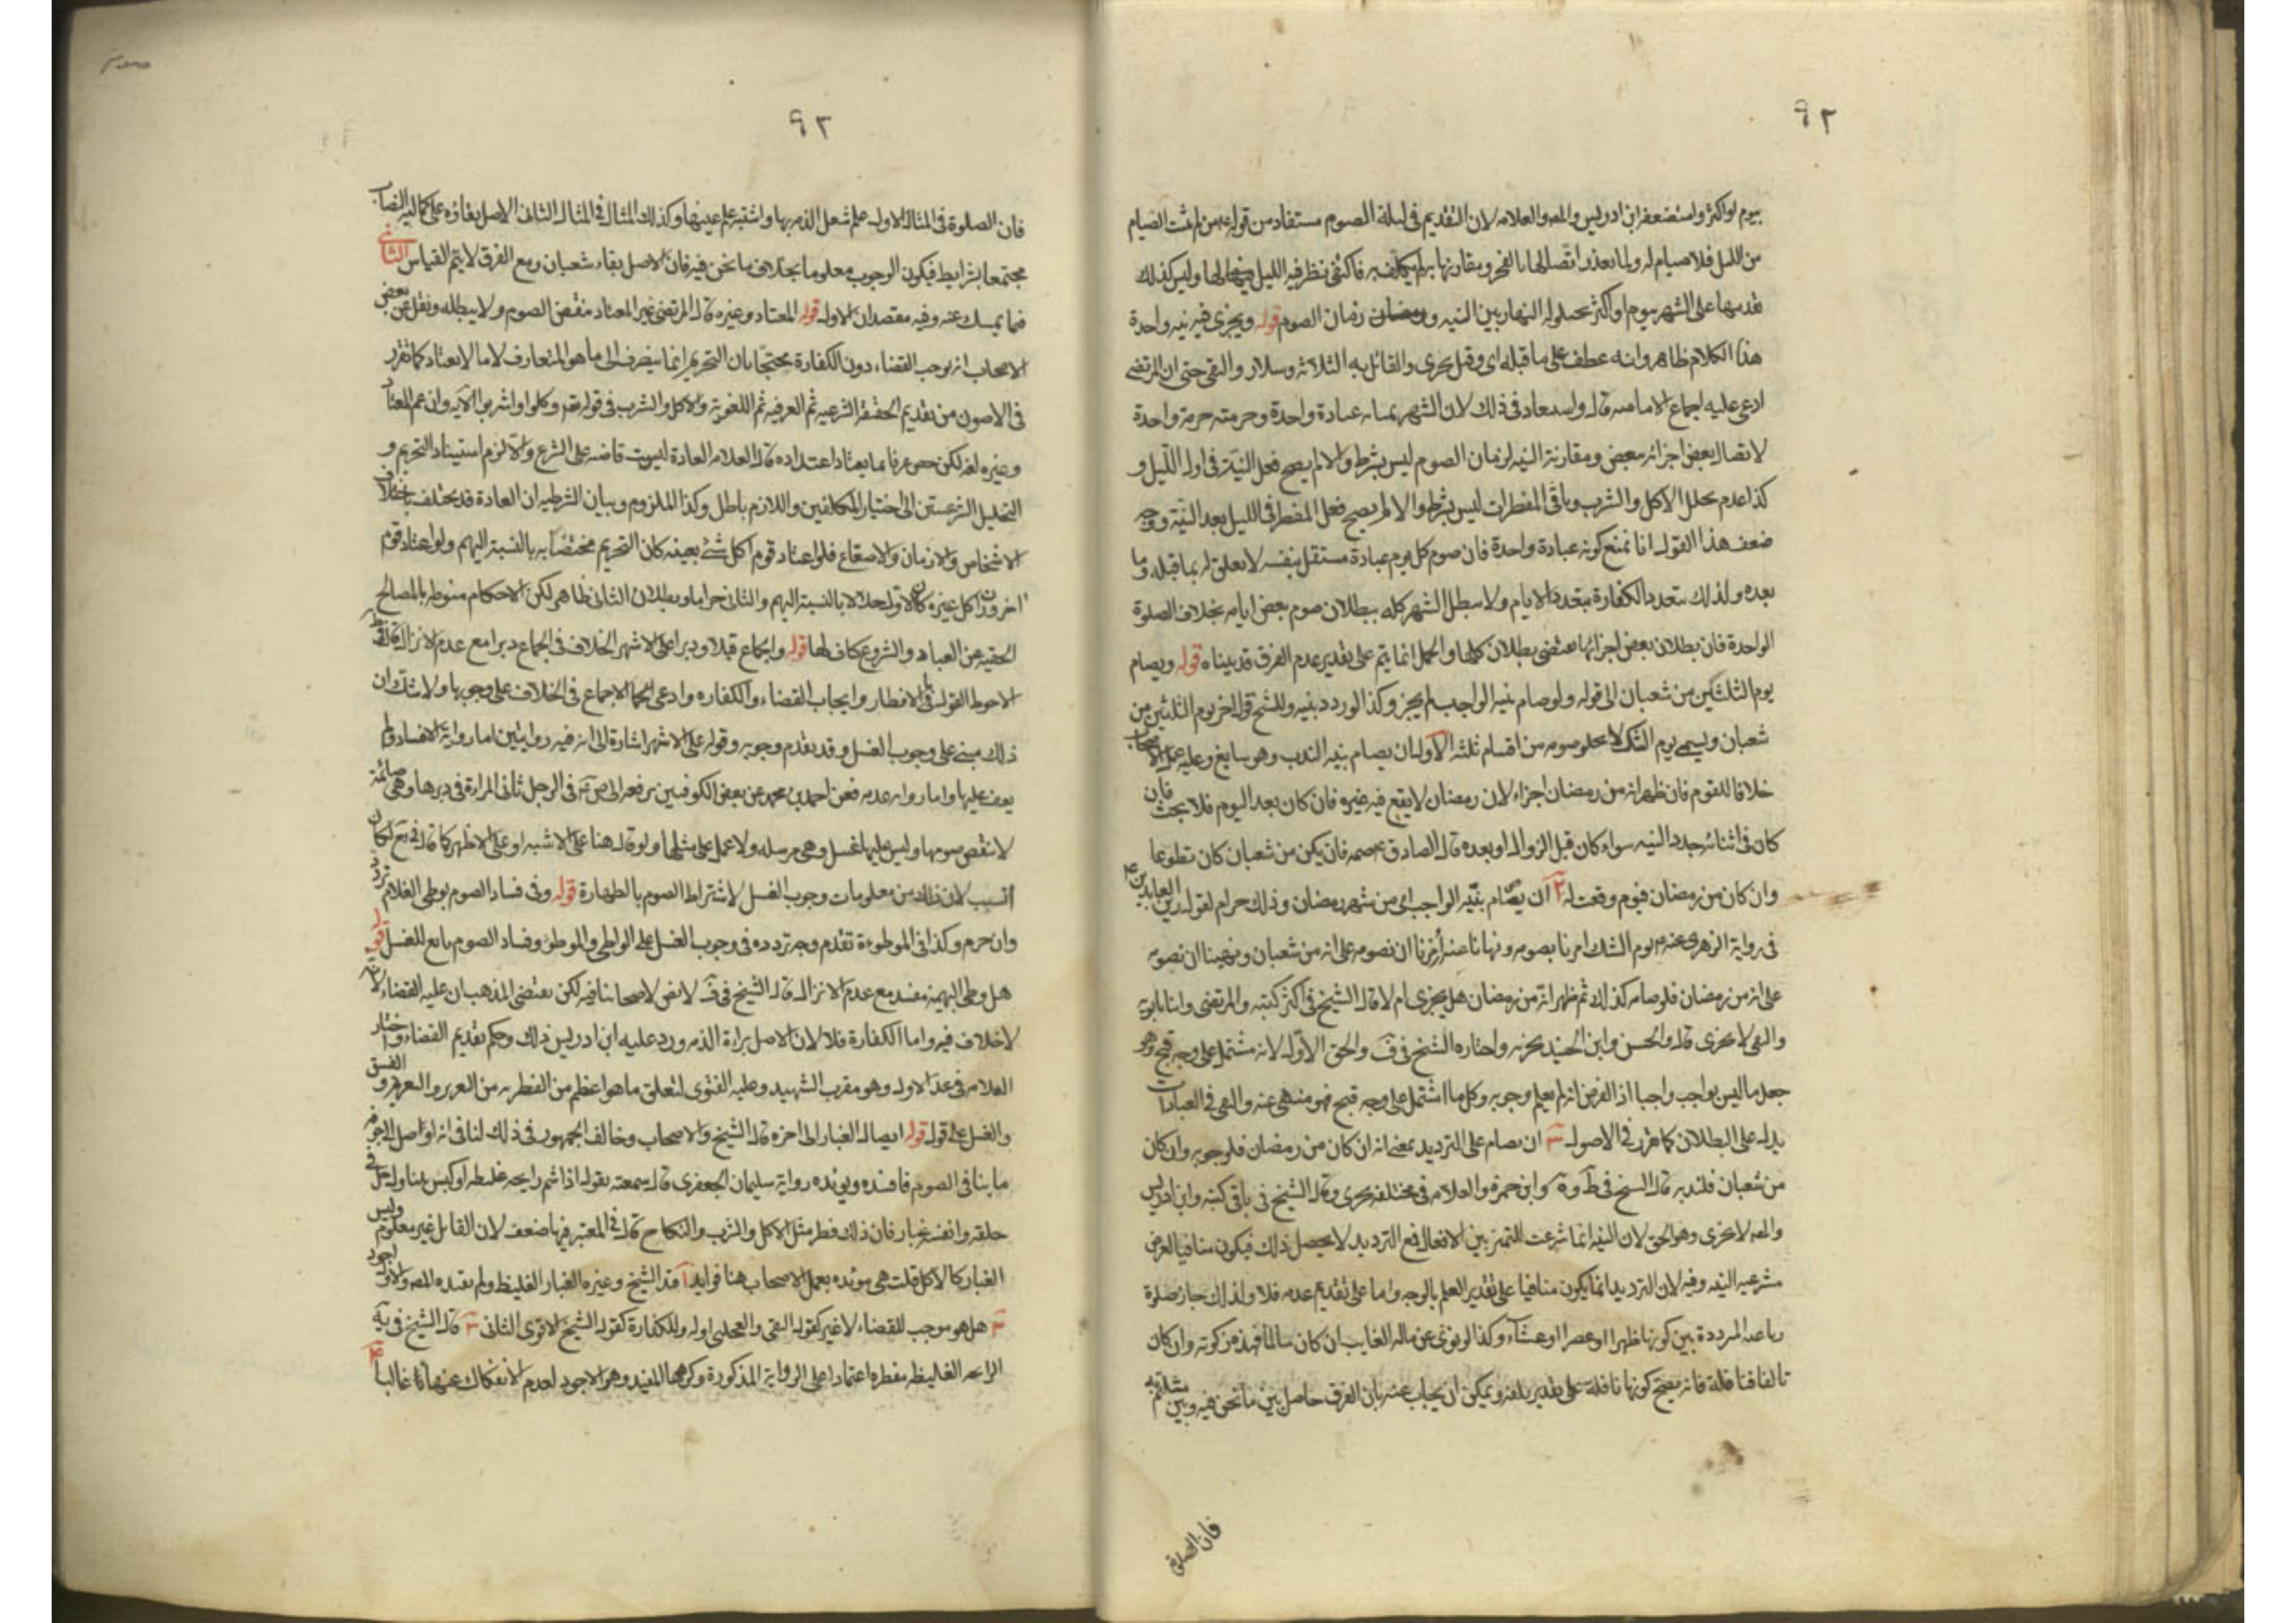 ٩٢
بيوم او اكثر واستضعفه ابن ادريس والمص والعلامه لان التقديم في ليلة الصوم مستفاد من قوله ع من لم يثبت الصيام
من الليل فلا صيام له ولما تعذر اتصالها بالفجر ومقارنتها به لم يكلف به فاكتفى نظرفيه الليل لها وليس كذلك
تقدمها على الشهر بيوم او اكثر لحيلولة النهار بين النيه و زمان الصوم قوله ويجزى فيه نيه واحدة
هذا الكلام ظاهره انه عطف على ما قبله اى وقيل يجرى والقائل به الثلاثة وسلار والتقى حتى ان المرتضى
ادعى عليه اجماع الاماميه قال ولا استبعاد فى ذلك لان الشهر بمثابه عبادة واحدة وحرمته حرمة واحدة
لاتصال بعض اجزائه ببعض ومقارنة النيه لزمان الصوم ليس بشرط والا لم يصح فعل النيّة فى اول اللّيل و
كذا عدم تخلل الاكل والشرب وباقى المفطرات ليس بشرط والا لم يصح فعل المفطر فى الليل بعد النيّة ووجه
ضعف هذا القول انا نمنع كونه عبادة واحدة فان صوم كل يوم عبادة مستقل بنفسه لا تعلق له بما قبله وما
بعده ولذلك تتعدد الكفارة بتعدد الايام ولا يبطل الشهر كله ببطلان صوم بعض ايامه بخلاف الصلوة
الواحدة فان بطلان بعض اجزائها يقتضى بطلان كلها والحمل انما يتم على تقدير عدم الفرق قد بيناه قوله ويصام
يوم الثلثين من شعبان الى قوله ولو صام بنيه الواجب لم يجز وكذا لو ردد بنيه وللشيخ قول اخر يوم الثلثين من
شعبان ويسمى يوم الشك لا يخلو صومه من اقسام ثلثه الاول ان يصام بنيه الندب وهو سايغ وعليه عمل الاصحاب
خلافا للقوم فان ظهر انه من رمضان اجزاء لان رمضان لا يقع فيه غيره فان كان بعد اليوم فلا بحث فان
كان فى اثنائه جدد النيه سواء كان قبل الزوال او بعده قال الصادق ع صمه فان يكن من شعبان كان تطوعا
وان كان من رمضان فيوم وفقت له ٢ ان يصام بنيّه الواجب اى من شهر رمضان وذلك حرام لقول زين العابدين ع
فى رواية الزهرى عنه ع يوم الشك امرنا بصومه ونهانا عنه أُمرنا ان نصومه على انه من شعبان ونهينا ان نصومه
على انه من رمضان فلو صامه كذلك ثم ظهر انّه من رمضان هل يجزى ام لا قال الشيخ فى اكثر كتبه والمرتضى وابنا بابويه
والتقى لا يجزى قال والحسن وابن الجنيد يجزيه واختاره الشيخ فى ف والحق الاوّل لانه مشتمل على وجه قبح وهو
جعل ما ليس بواجب واجبا اذ الفرض انه لم يعلم وجوبه وكل ما اشتمل على وجه قبح فهو منهى عنه والنهى فى العبادات
يدل على البطلان كما تقرر فى الاصول ٣ ان يصام على الترديد بمعنى انه ان كان من رمضان فلوجوبه وان كان
من شعبان فلندبه قال الشيخ فى ط و ف وابن حمزه والعلامه فى مختلفه يجرى وقال الشيخ فى باقى كتبه وابن ادريس
والمص لا يجزى وهو الحق لان النيه انما شرعت للتميز بين الافعال فمع الترديد لا يحصل ذلك فيكون منافيا لغرض
مشرعيه النيه وفيه لان الترديد انما يكون منافيا على تقدير العلم بالوجه واما على تقدير عدمه فلا ولذلك جاز صلوة
رباعيه المرددة بين كونها ظهرا او عصرا او عشاء وكذا لو نوى عن ماله الغايب ان كان سالما فهذه زكوته وان كان
تالفا فنافلة فانه يصح كونها نافلة على تقدير تلفه ويمكن ان يجاب عنه بان الفرق حاصل بين ما نحن فيه وبين
فان الصلوة
٩٣
فان الصلوة فى المثال الاول علم شغل الذمه بها واشتبه علم عينها وكذلك المثال فى المثال الثانى الاصل بقاؤه على كماليه النصاب
مجتمعا بشرايط فيكون الوجوب معلوما بخلاف ما نحن فيه فان الاصل بقاء شعبان ومع الفرق لا يتم القياس الثانى
فيما يمسك عنه وفيه مقصدان الاول قوله المعتاد وغيره قال المرتضى غير المعتاد منقض الصوم ولا يبطله ونقل عن بعض
الاصحاب انه يوجب القضاء دون الكفارة محتجًا بان التحريم انما ينصرف الى ما هو المتعارف لا ما لا يعتاد كما تقرر
فى الاصول من تقديم الحقيقة الشرعيه ثم العرفيه ثم اللغوية والاكل والشرب فى قوله تعالى وكلوا واشربوا الآيه وان عم المعتاد
وغيره لغة لكن خص عرفا بما يعتاد اعتداده قال العلامه العادة ليست قاضيه على الشرع والا لزم استيناد التحريم و
التحليل الشرعيتين الى اختيار المكلفين واللازم باطل وكذا الملزوم وبيان الشرطيه ان العادة قد يختلف باختلاف
الاشخاص والازمان والاصقاع فلو اعتاد قوم اكل شئ بعينه كان التحريم مختصًا به بالنسبة اليهم ولو اعتاد قوم
اخرون اكل غيره كان الاول حلالا بالنسبة اليهم والثانى حراما وبطلان الثانى ظاهر لكن الاحكام منوطه بالمصالح
الخفيه عن العباد والشرع كاف لها قوله والجماع قبلا ودبرا على الاشهر الخلاف فى الجماع دبرا مع عدم الانزال
الاحوط القول بالافطار وايجاب القضاء والكفاره وادعى الاجماع فى الخلاف على وجوبها ولا شك ان
ذلك مبنى على وجوب الغسل وقد تقدم وجوبه وقوله على الاشهر اشارة الى انه فيه روايتين اما رواية الافساد ولم
يقف عليها واما رواية عدمه فعن احمد بن محمد عن بعض الكوفيين يرفعه الى ص ع فى الرجل ياتى المراة فى دبرها وهى صائمة
لا ينقض صومها وليس عليها غسل وهى مرسله ولا عمل على مثلها ولو قال هنا على الاشبه او على الاظهر كما قال فى يع لكان
انسب لان ذلك من معلومات وجوب الغسل لاشتراط الصوم بالطهارة قوله وفى فساد الصوم بوطى الغلام تردد
وان حرم وكذا فى الموطوءة تقدم وجه تردده فى وجوب الغسل على الواطى والموطوء وفساد الصوم تابع للغسل قوله
هل وطى البهيمة مفسد مع عدم الانزال قال الشيخ فى ف لا نص لاصحابنا فيه لكن يقتضى المذهب ان عليه القضاء لانه
لا خلاف فيه واما الكفارة فلا لان الاصل براءة الذمه ورد عليه ابن ادريس ذلك وحكم بتقديم القضاء واختار
العلامه فى عد الاول وهو مقرب الشهيد وعليه الفتوى لتعلق ما هو اعظم من الفطر به من التعزير والفسق و
والغسل على قول قوله ايصال الغبار الى اخره قال الشيخ والاصحاب وخالف الجمهور فى ذلك لنا فى انه اوصل الى جوفه
ما ينافى الصوم فافسده ويؤيده رواية سليمان الجعفرى قال سمعته يقول اذا شم رايحه غليظه او كنس بيتا ودخل فى
حلقه وانفه غبار فان ذلك فطر مثل الاكل والشرب والنكاح قال فى المعتبر فيها ضعف لان القائل غير معلوم وليس
الغبار كالاكل قلت هى مويده بعمل الاصحاب هنا فوايد ا قيد الشيخ وغيره الغبار الغليظ ولم يقيده المص والاول اجود
٢ هل هو موجب للقضاء لا غير كقول التقى والعجلى اوله وللكفارة كقول الشيخ الاقوى الثانى ٣ قال الشيخ فى يه
الرايحه الغليظه مفطره اعتمادا على الرواية المذكورة وكرهها المفيد وهو الاجود لعدم الانفكاك عنها غالبا ٤